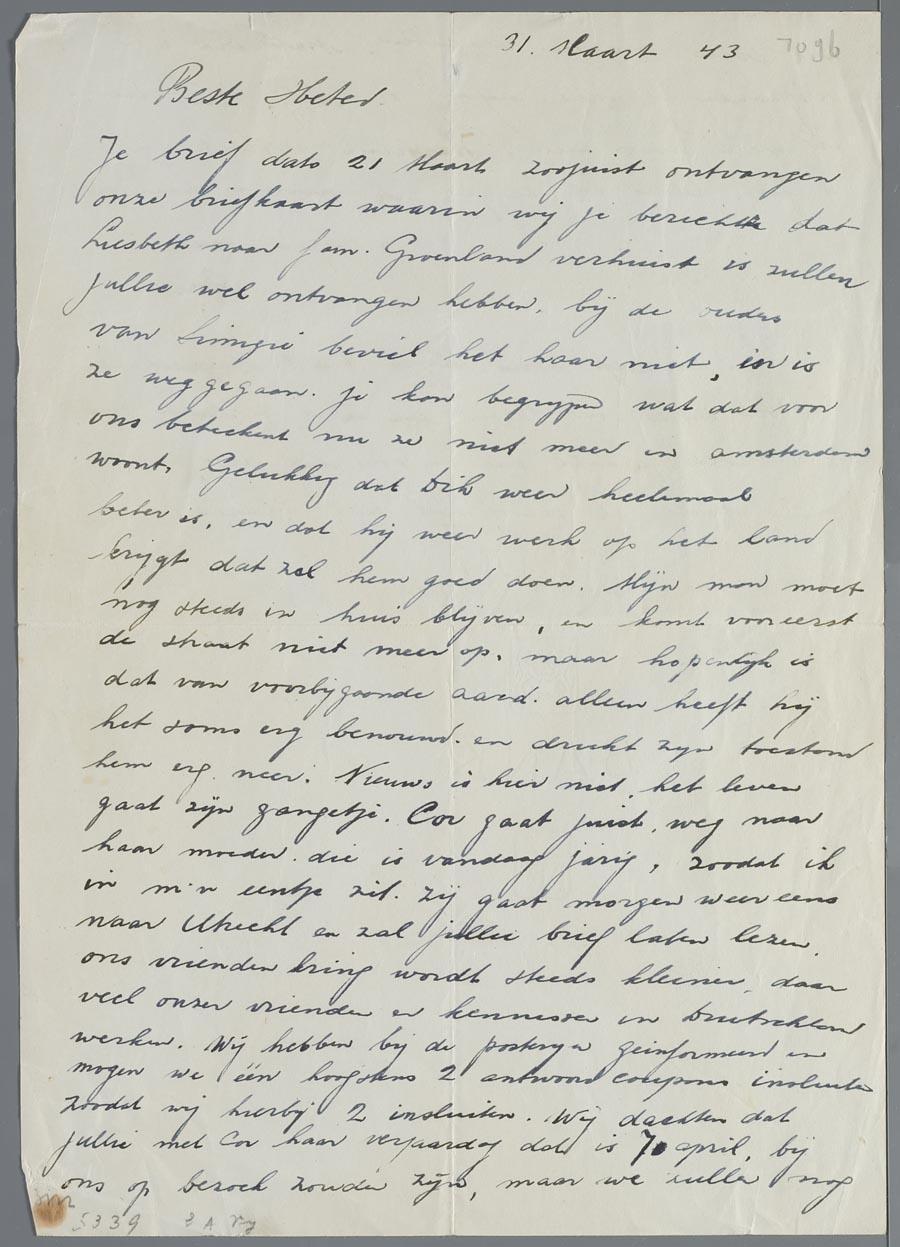 31. Maart 43 7096
Beste
Je brief dato 21 Maart zoojuist ontvangen
onze briefkaart waarin wij je berichtte dat
Liesbeth naar fam. Groenland verhuist is zullen
jullie wel ontvangen hebben. bij de ouders
van beviel het haar niet, en is
ze weggegaan. je kan begrijpen wat dat voor
ons beteekent nu ze niet meer in amsterdam
woont. Gelukkig dat Dik weer heelemaal
beter is, en dat hij weer werk op het land
krijgt dat zal hem goed doen. Mijn man moet
nog steeds in huis blijven, en komt vooreerst
de straat niet meer op. maar hopenlijk is
dat van voorbijgaande aard. alleen heeft hij
het soms erg benauwd. en drukt zijn toestand
hem erg neer. Nieuws is hier niet, het leven
gaat zijn gangetje. Cor gaat juist weg naar
haar moeder. die is vandaag jarig, zoodat ik
in m'n eentje zit. Zij gaat morgen weer eens
naar Utrecht en zal jullie brief laten lezen.
ons vriendenkring wordt steeds kleiner, daar
veel onzer vrienden en kennissen in Duitschland
werken. Wij hebben bij de posterijen geinformeerd en
mogen we één hoogstens 2 antwoord coupons insluiten
zoodat wij hierbij 2 insluiten. Wij dachten dat
jullie met Cor haar verjaardag dat is 7 april, bij
ons op bezoek zouden zijn, maar we zullen nog
5339